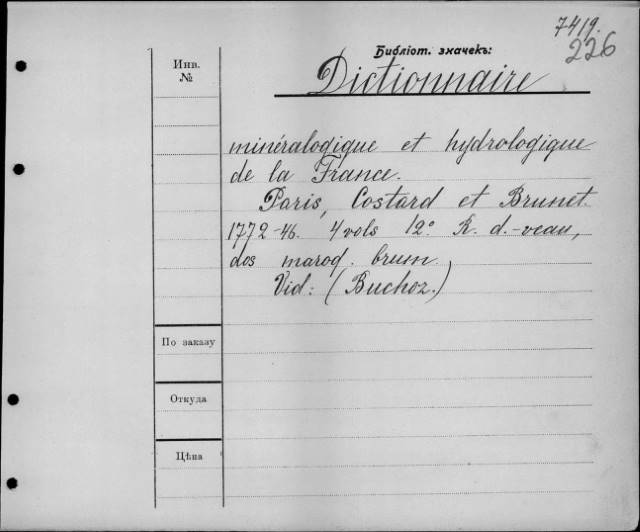 7419.
226
Библіот. значекъ:
Инв.
№
Dictionnaire
minéralogique et hydrologique
de la France.
Paris, Costard et Brunet
1772-46. 4 vols 12° R. d.-veau,
dos maroq. brum.
Vid: (Buchoz.)
По заказу
Откуда
Цѣна